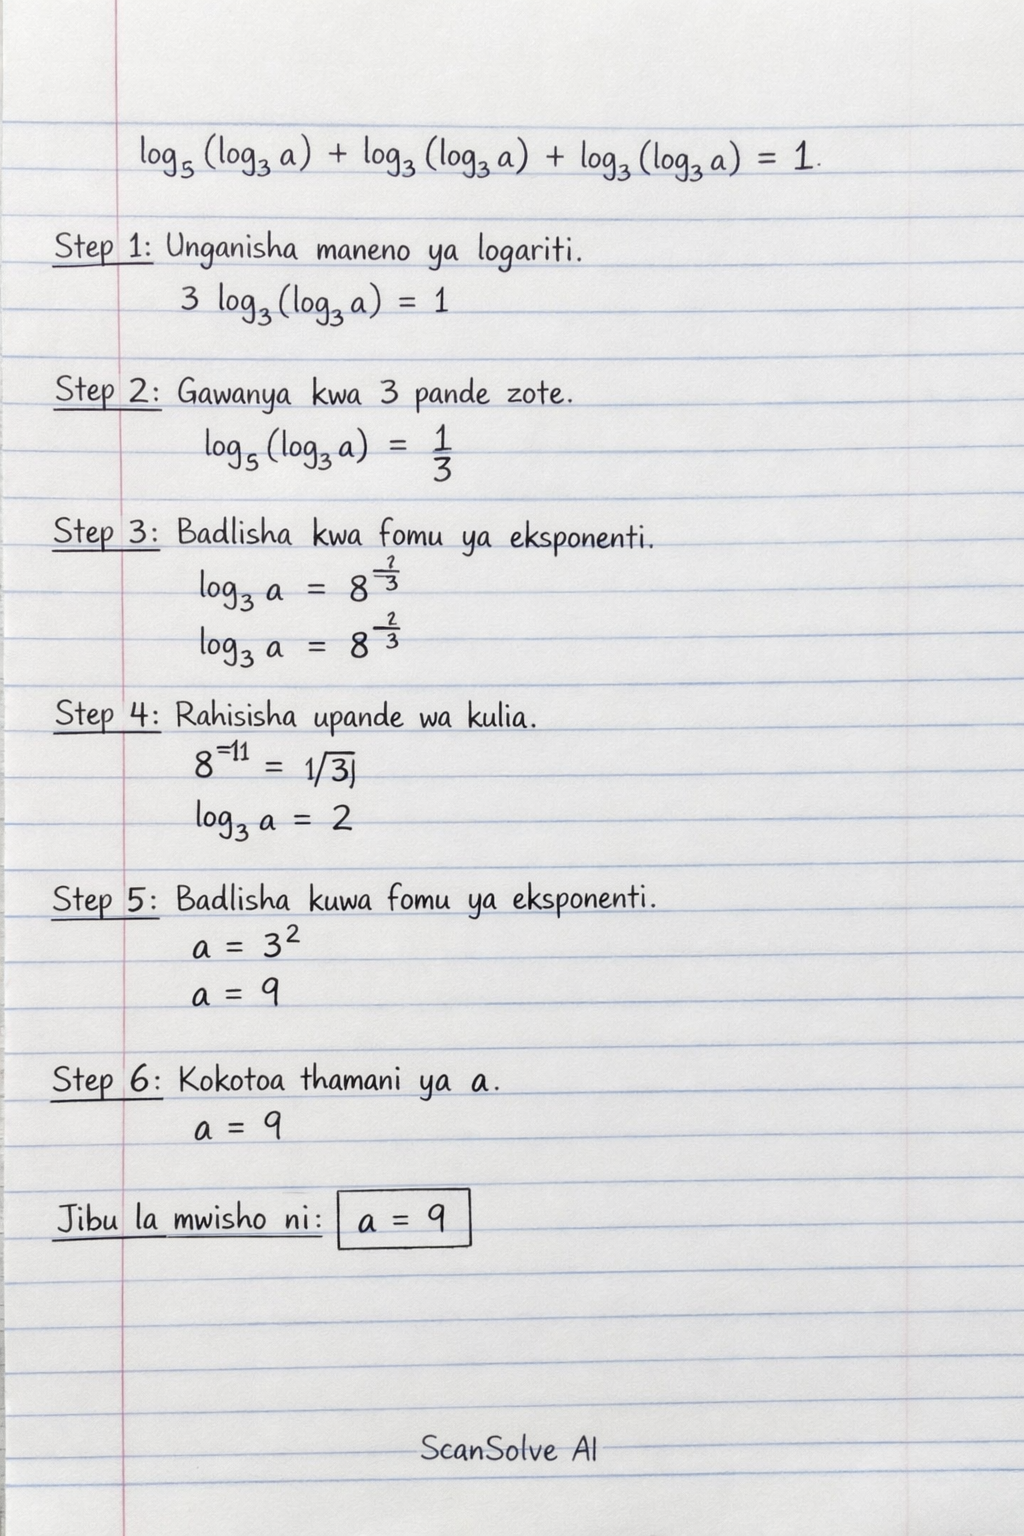 log₅ (log₃ a) + log₃ (log₃ a) + log₃ (log₃ a) = 1.
Step 1: Unganisha maneno ya logariti.
3 log₃ (log₃ a) = 1
Step 2: Gawanya kwa 3 pande zote.
log₅ (log₃ a) = 1/3
Step 3: Badlisha kwa fomu ya eksponenti.
log₃ a = 8
log₃ a = 8^(-2/3)
Step 4: Rahisisha upande wa kulia.
8^(=11) = 1/3
log₃ a = 2
Step 5: Badlisha kuwa fomu ya eksponenti.
a = 3²
a = 9
Step 6: Kokotoa thamani ya a.
a = 9
Jibu la mwisho ni: a = 9
ScanSolve AI